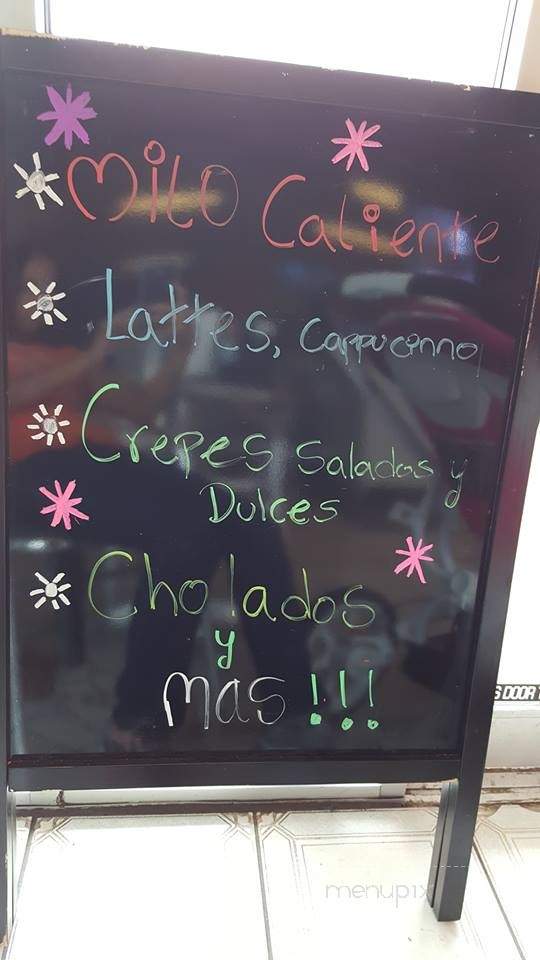 MiLO Caliente
Lattes, Cappucinno
Crepes Salados y
Dulces
Cholados
y
mas !!!
S DOOR
menupix